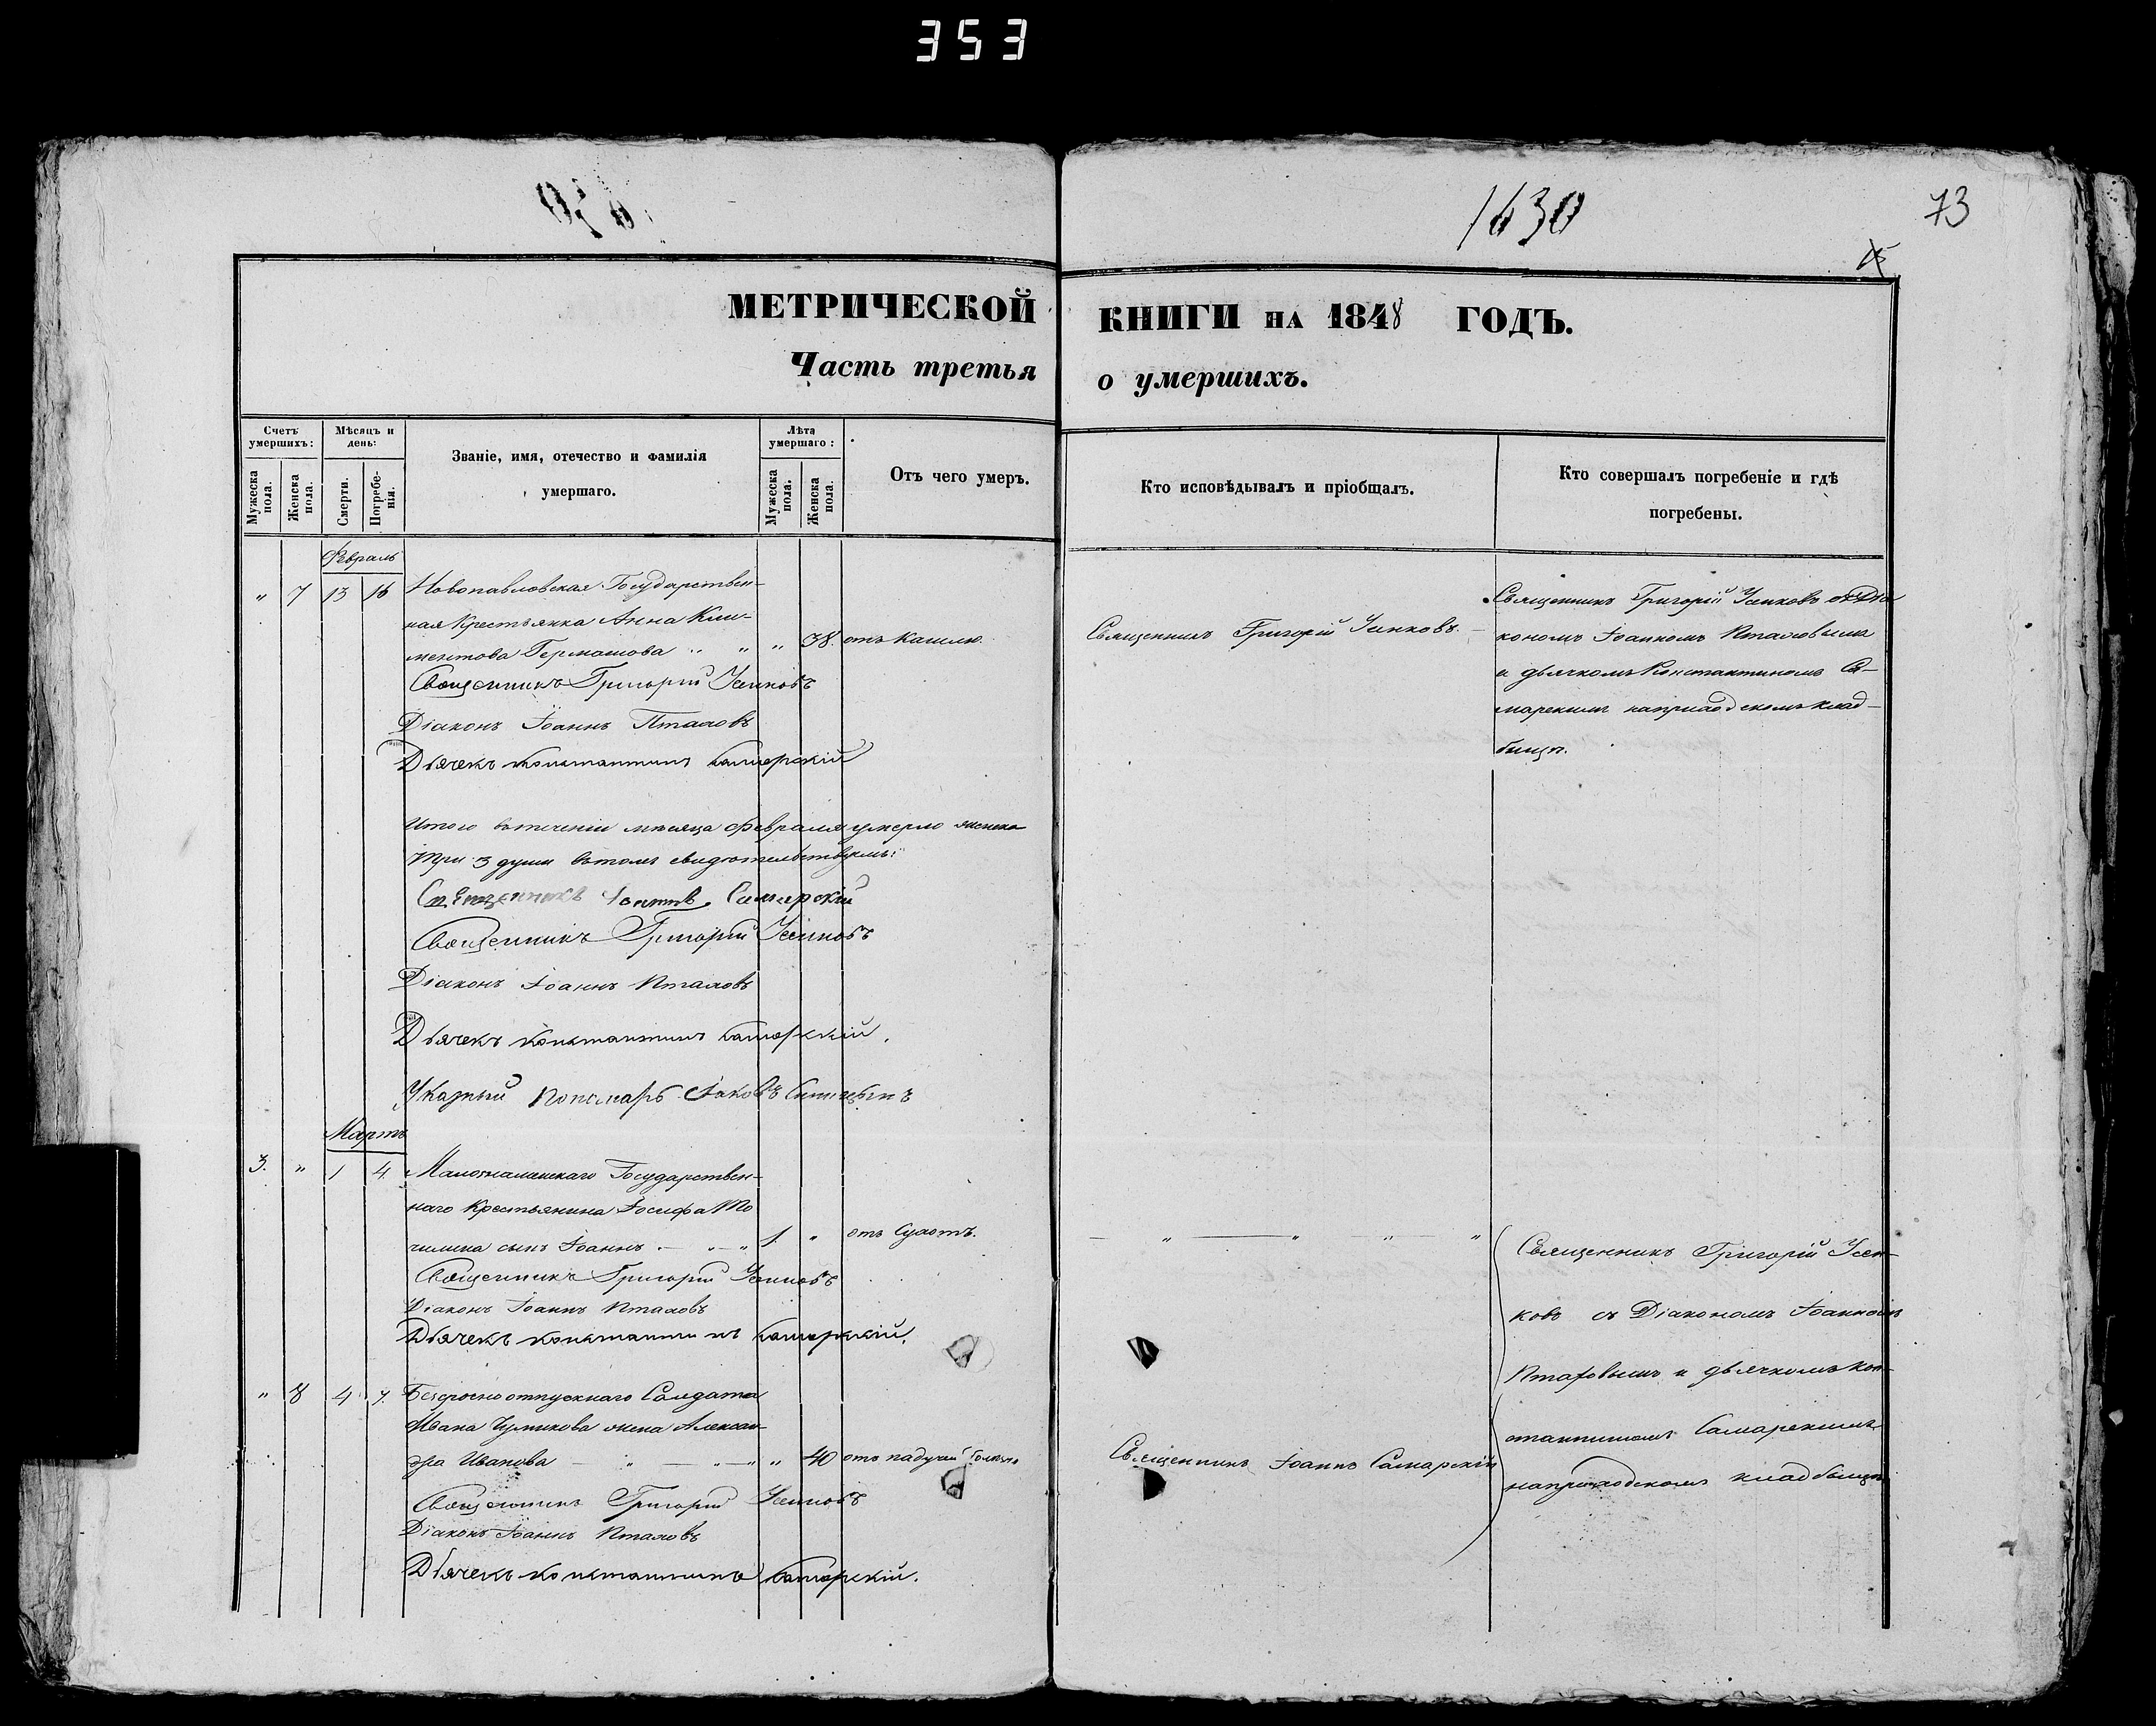 353
1630
73
МЕТРИЧЕСКОЙ КНИГИ НА 1848 ГОДЪ.
Часть третья о умершихъ.
Счетъ умершихъ:
Мужеска пола.
Женска пола.
Мѣсяцъ и день:
Смерти.
Погребенія.
Званіе, имя, отечество и фамилія умершаго.
Лѣта умершаго:
Мужеска пола.
Женска пола.
Отъ чего умеръ.
Кто исповѣдывалъ и пріобщалъ.
Кто совершалъ погребеніе и гдѣ погребены.
Февраль
" 7 13 16 Новопавловская Государствен-
ная Крестьянка Анна Кли-
ментова " " " 38. отъ кашлю
Священникъ Григорій Усиковъ
Діаконъ Іоаннъ Пталовъ
Дьячекъ Константинъ Самарскій
Священникъ Григорій Усиковъ.
Священникъ Григорій Усиковъ съ Діа
кономъ Іоанномъ Пталовымъ
и дьячкомъ Константиномъ Са-
марскимъ наприходскомъ клад-
бищѣ.
Итого втеченіи мѣсяца февраля умерло женска
три 3 души вътомъ свидѣтельствуемъ:
Священникъ Іоаннъ Самарскій
Священникъ Григорій Усиковъ
Діаконъ Іоаннъ Пталовъ
Дьячекъ Константинъ Самарскій.
Указный Пономарь Іаковъ
Мартъ
3. " 1 4. Государствен-
наго Крестьянина Іосифа То
чилина сынъ Іоаннъ " " 1. " отъ Сухотъ.
Священникъ Григорій Усиковъ
Діаконъ Іоаннъ Пталовъ
Дьячекъ Константинъ Самарскій.
" " " "
Священникъ Григорій Усен-
ковъ съ Діакономъ Іоанномъ
Пталовымъ и дьячкомъ Кон-
стантиномъ Самарскимъ
наприходскомъ кладбищѣ
" 8 4 7. Безсрочноотпускнаго Солдата
Ивана Чумикова жена Алексан-
дра Иванова " " " 40 отъ падучей болезни
Священникъ Григорій Усиковъ
Діаконъ Іоаннъ Пталовъ
Дьячекъ Константинъ Самарскій.
Священникъ Іоаннъ Самарскій